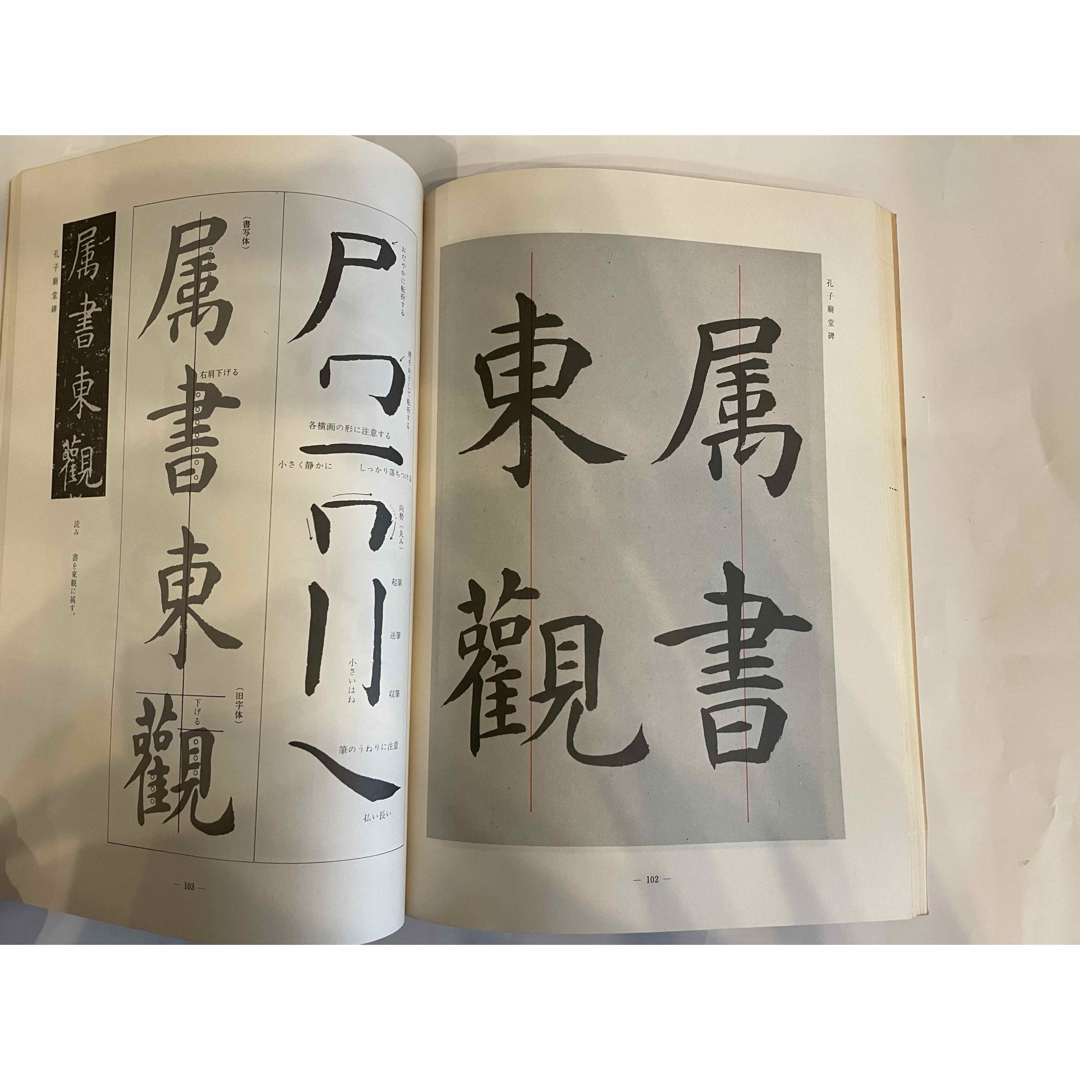 孔子廟堂碑
属書
東觀
— 102 —
おだやかに転折する
角をおとして転折する
各横画の形に注意する
小さく静かに
しっかり落ちつける
向勢(丸み)
起筆
送筆
収筆
小さいはね
筆のうねりに注意
払い長い
(書写体)
属書東觀
右肩下げる
(旧字体)
下げる
属書東觀
孔子廟堂碑
読み 書を東観に属す。
— 103 —